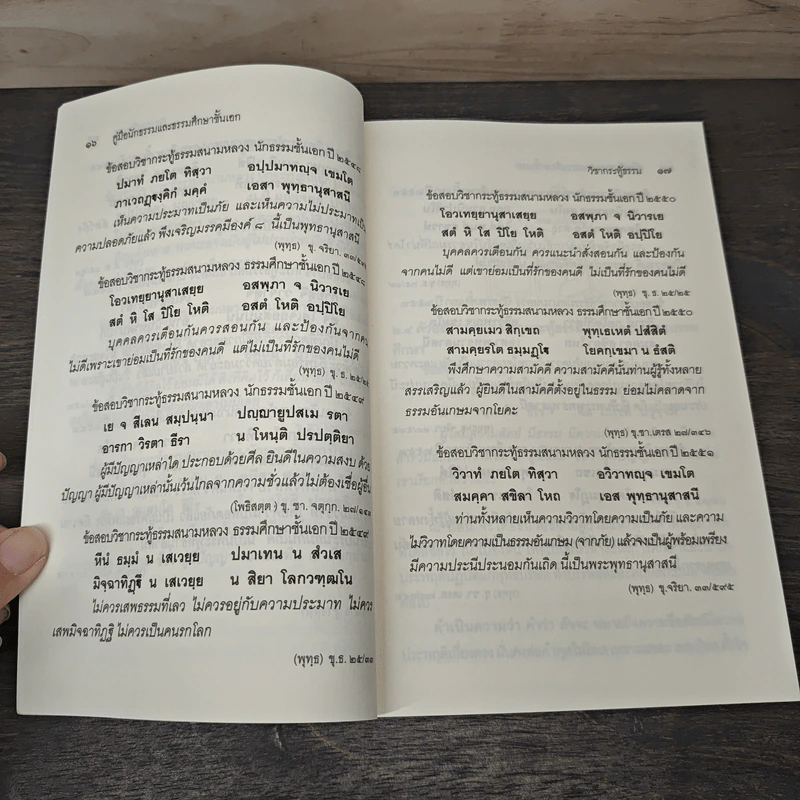 ๑๖ คู่มือนักธรรมและธรรมศึกษาชั้นเอก
ข้อสอบวิชากระทู้ธรรมสนามหลวง นักธรรมชั้นเอก ปี ๒๕๔๘
ปมาทํ ภยโต ทิสฺวา อปฺปมาทญฺจ เขมโต
ภาเวถฏฺฐงฺคิกํ มคฺคํ เอสา พุทฺธานุสาสนี
เห็นความประมาทเป็นภัย และเห็นความไม่ประมาทเป็น
ความปลอดภัยแล้ว พึงเจริญมรรคมีองค์ ๘ นี้เป็นพุทธานุสาสนี
(พุทฺธ) ขุ. จริยา. ๓๓/๕๙๕
ข้อสอบวิชากระทู้ธรรมสนามหลวง ธรรมศึกษาชั้นเอก ปี ๒๕๔๘
โอวเทยฺยานุสาเสยฺย อสพฺภา จ นิวารเย
สตํ หิ โส ปิโย โหติ อสตํ โหติ อปฺปิโย
บุคคลควรเตือนกันควรสอนกัน และป้องกันจากคน
ไม่ดีเพราะเขาย่อมเป็นที่รักของคนดี แต่ไม่เป็นที่รักของคนไม่ดี
(พุทฺธ) ขุ. ธ. ๒๕/๒๕
ข้อสอบวิชากระทู้ธรรมสนามหลวง นักธรรมชั้นเอก ปี ๒๕๔๙
เย จ สีเลน สมฺปนฺนา ปญฺญายูปสเม รตา
อารกา วิรตา ธีรา น โหนฺติ ปรปตฺติยา
ผู้มีปัญญาเหล่าใด ประกอบด้วยศีล ยินดีในความสงบ ด้วย
ปัญญา ผู้มีปัญญาเหล่านั้นเว้นไกลจากความชั่วแล้วไม่ต้องเชื่อผู้อื่น
(โพธิสตฺต) ขุ. ชา. จตุกฺก. ๒๗/๑๔๓
ข้อสอบวิชากระทู้ธรรมสนามหลวง ธรรมศึกษาชั้นเอก ปี ๒๕๔๙
หีนํ ธมฺมํ น เสเวยฺย ปมาเทน น สํวเส
มิจฺฉาทิฏฺฐึ น เสเวยฺย น สิยา โลกวฑฺฒโน
ไม่ควรเสพธรรมที่เลว ไม่ควรอยู่กับความประมาท ไม่ควร
เสพมิจฉาทิฏฐิ ไม่ควรเป็นคนรกโลก
(พุทฺธ) ขุ.ธ. ๒๕/๓๗
วิชากระทู้ธรรม ๑๗
ข้อสอบวิชากระทู้ธรรมสนามหลวง นักธรรมชั้นเอก ปี ๒๕๕๐
โอวเทยฺยานุสาเสยฺย อสพฺภา จ นิวารเย
สตํ หิ โส ปิโย โหติ อสตํ โหติ อปฺปิโย
บุคคลควรเตือนกัน ควรแนะนำสั่งสอนกัน และป้องกัน
จากคนไม่ดี แต่เขาย่อมเป็นที่รักของคนดี ไม่เป็นที่รักของคนไม่ดี
(พุทฺธ) ขุ. ธ. ๒๕/๒๕
ข้อสอบวิชากระทู้ธรรมสนามหลวง ธรรมศึกษาชั้นเอก ปี ๒๕๕๐
สามคฺยเมว สิกฺเขถ พุทฺเธเหตํ ปสํสิตํ
สามคฺยรโต ธมฺมฏฺโฐ โยคกฺเขมา น ธํสติ
พึงศึกษาความสามัคคี ความสามัคคีนั้นท่านผู้รู้ทั้งหลาย
สรรเสริญแล้ว ผู้ยินดีในสามัคคีตั้งอยู่ในธรรม ย่อมไม่คลาดจาก
ธรรมอันเกษมจากโยคะ
(พุทฺธ) ขุ.ชา.เตรส ๒๗/๓๔๖
ข้อสอบวิชากระทู้ธรรมสนามหลวง นักธรรมชั้นเอก ปี ๒๕๕๑
วิวาทํ ภยโต ทิสฺวา อวิวาทญฺจ เขมโต
สมคฺคา สขิลา โหถ เอส พุทฺธานุสาสนี
ท่านทั้งหลายเห็นความวิวาทโดยความเป็นภัย และความ
ไม่วิวาทโดยความเป็นธรรมอันเกษม (จากภัย) แล้วจงเป็นผู้พร้อมเพรียง
มีความประนีประนอมกันเถิด นี้เป็นพระพุทธานุสาสนี
(พุทฺธ) ขุ.จริยา. ๓๓/๕๙๕